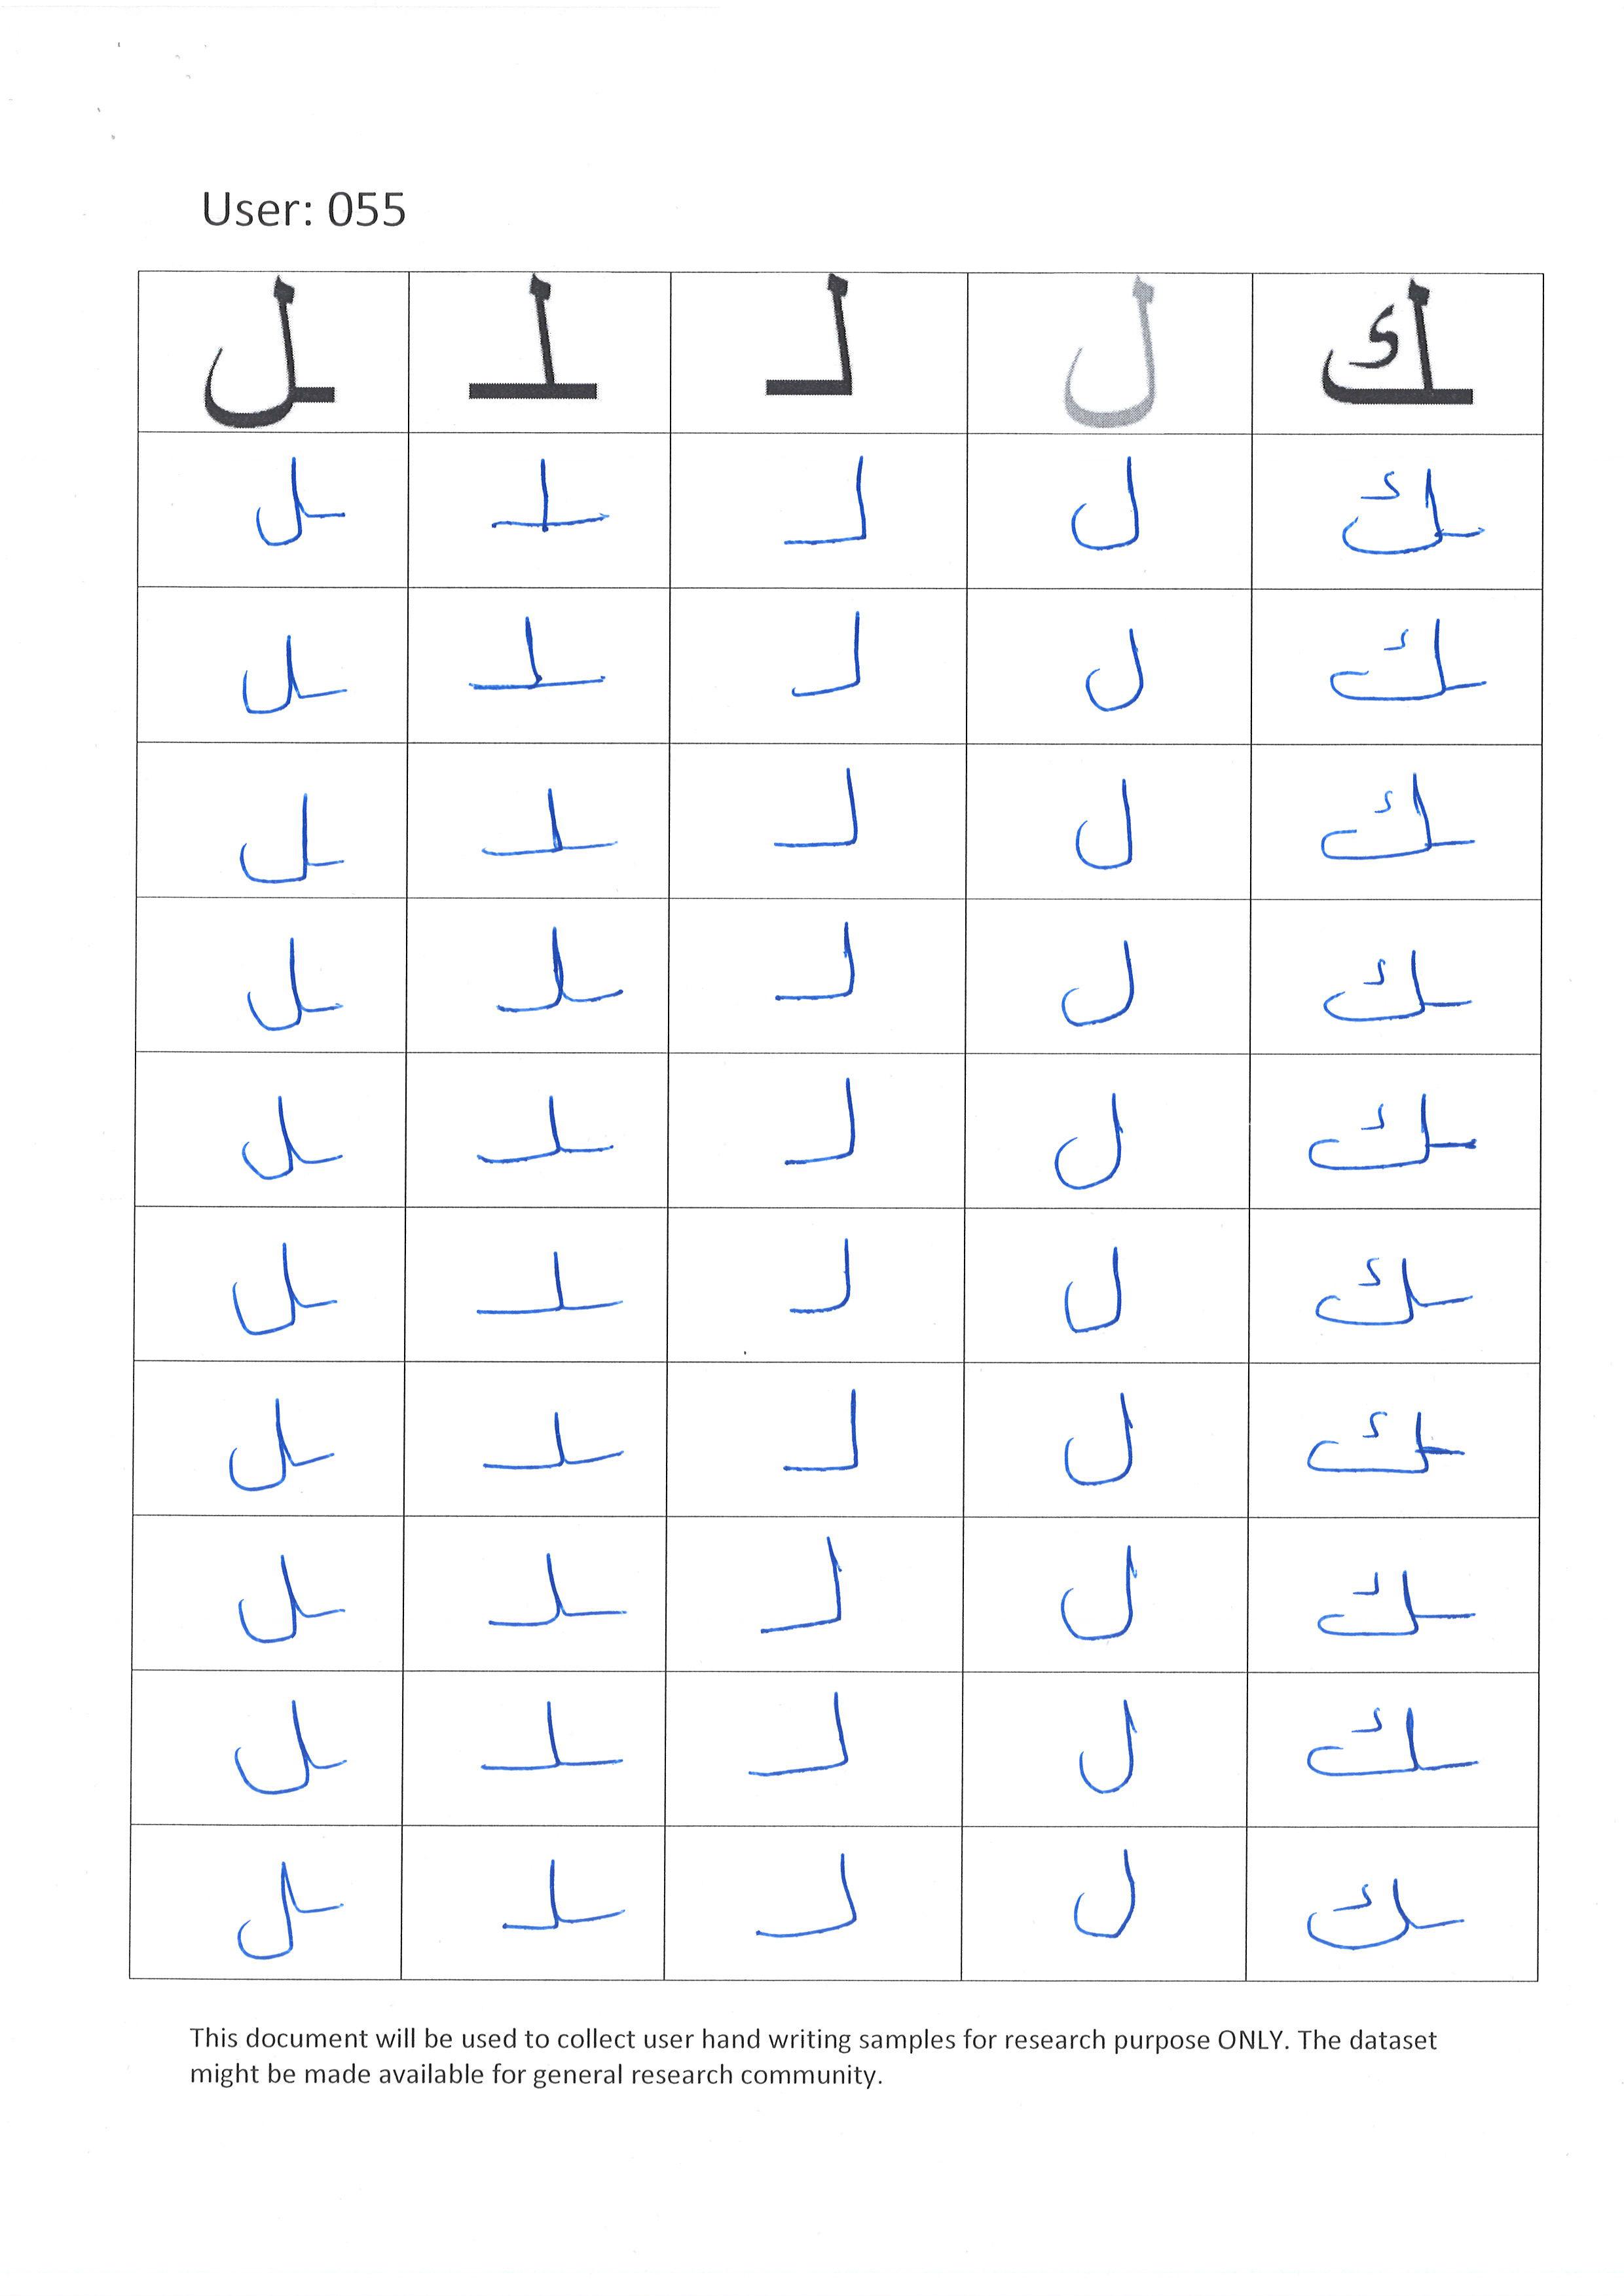 User: 055
ـل ـلـ لـ ل ـك
ـل ـلـ لـ ل ـك
ـل ـلـ لـ ل ـك
ـل ـلـ لـ ل ـك
ـل ـلـ لـ ل ـك
ـل ـلـ لـ ل ـك
ـل ـلـ لـ ل ـك
ـل ـلـ لـ ل ـك
ـل ـلـ لـ ل ـك
ـل ـلـ لـ ل ـك
ـل ـلـ لـ ل ـك
This document will be used to collect user hand writing samples for research purpose ONLY. The dataset
might be made available for general research community.